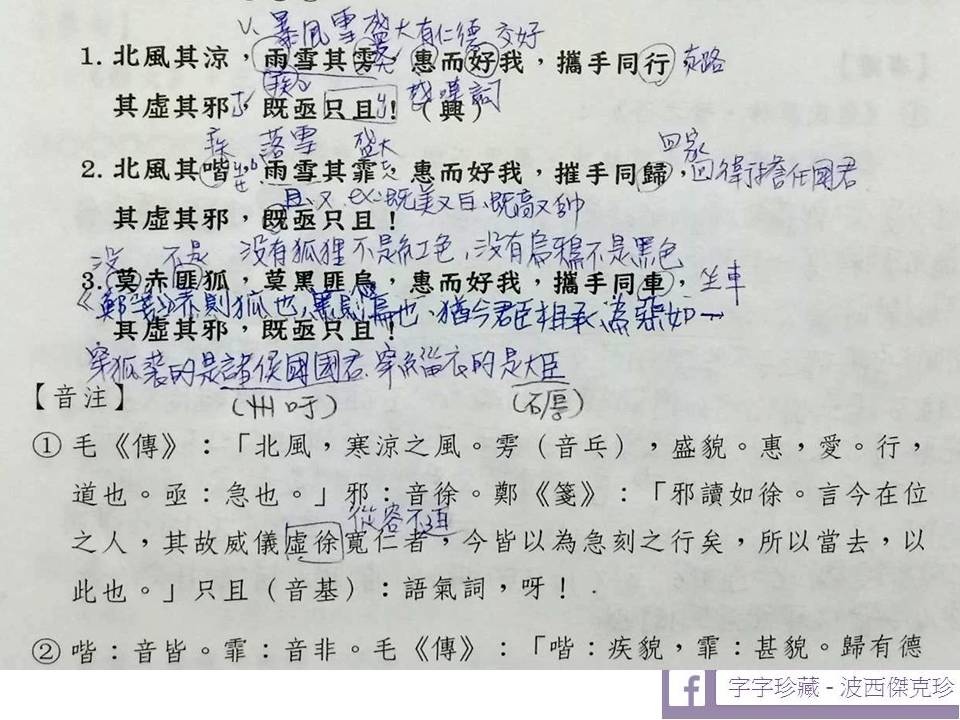 v. 暴風雪 盛大有仁德 交好
1. 北風其涼，雨雪其雱，惠而好我，攜手同行 道路
其虛其邪，既亟只且！（興） 感嘆詞
疾 落雪 盛大 回家
2. 北風其喈，雨雪其霏，惠而好我，摧手同歸，回衛擔任國君
且、又 ex: 既美又白、既高又帥
其虛其邪，既亟只且！
沒 不是 沒有狐狸不是紅色，沒有烏鴉不是黑色
3. 莫赤匪狐，莫黑匪烏，惠而好我，攜手同車，坐車
《鄭箋》赤則狐也，黑則烏也，猶今君臣相承，為惡如一
其虛其邪，既亟只且！
穿狐裘的是諸侯國國君 穿緇衣的是大臣
【音注】 (州吁) (石厚)
① 毛《傳》：「北風，寒涼之風。雱（音乓），盛貌。惠，愛。行，
道也。亟：急也。」邪：音徐。鄭《箋》：「邪讀如徐。言今在位
從容不迫
之人，其故威儀虛徐寬仁者，今皆以為急刻之行矣，所以當去，以
此也。」只且（音基）：語氣詞，呀！
② 喈：音皆。霏：音非。毛《傳》：「喈：疾貌，霏：甚貌。歸有德
字字珍藏 - 波西傑克珍